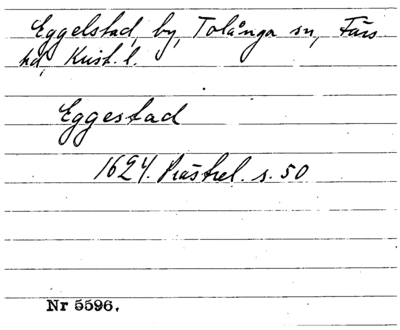 Eggelstad, by, Tolånga sn, Färs
hd, Krist. l.
Eggestad
1624. Prästrel. s. 50
Nr 5596.